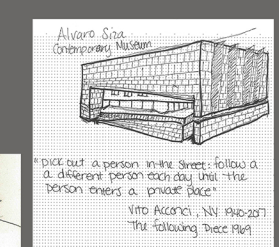 Alvaro Siza
Contemporary Museum
"pick out a person in the street: follow a
a different person each day until the
person enters a private place"
Vito Acconci, NY 1940-2017
The following Piece 1969